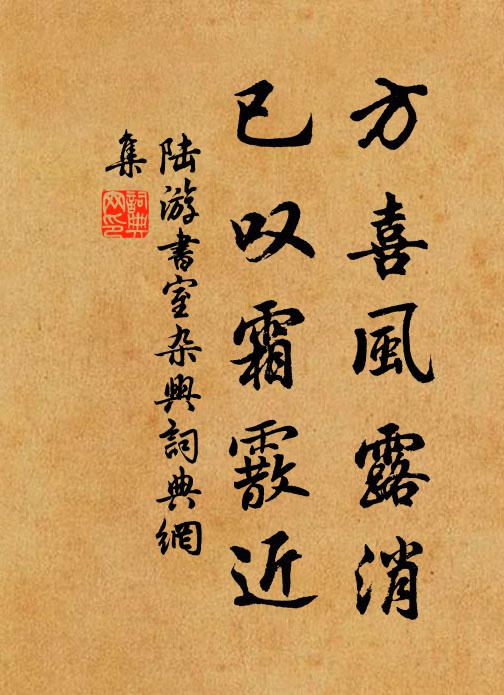 方喜風露消
已叹霜霰近
陆游書室杂興詞典網
集
詞典网印